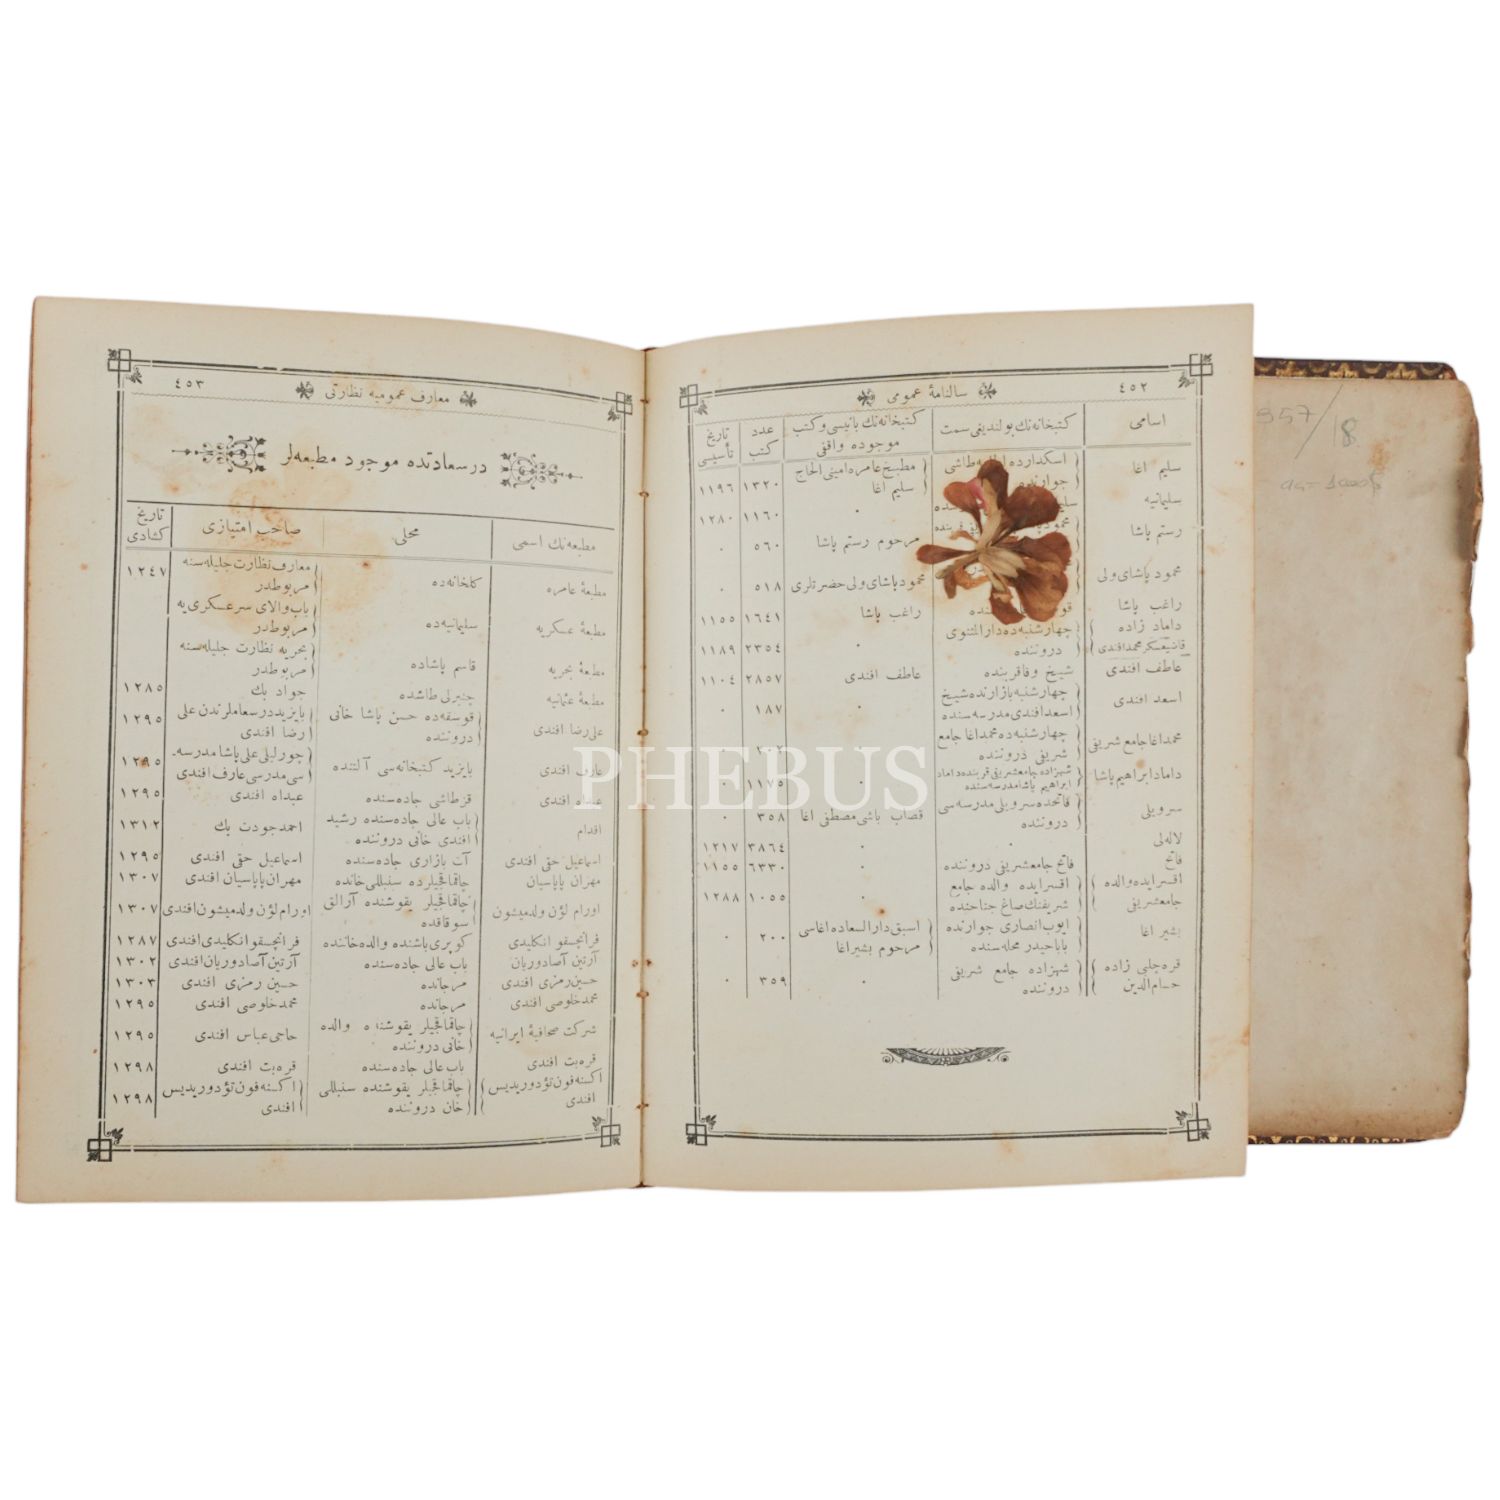 ٤٥٢
سالنامهٔ عمومی
اسامی
كتبخانه‌نك بولندیغی سمت
كتبخانه‌نك بانیسی وكتب
موجوده واقفی
عدد
كتب
تاریخ
تأسیسی
سلیم اغا
اسكدارده
طاشی
جوارنده
مطبخ عامره امینی الحاج
سلیم اغا
١٣٢٠
١١٩٦
سلیمانیه
١١٦٠
١٢٨٠
رستم پاشا
مرحوم رستم پاشا
٥٦٠
٠
محمود پاشای ولی
محمود پاشای ولی حضرتلری
٥١٨
٠
راغب پاشا
راغب پاشا
١٦٤١
١١٥٥
داماد زاده
قاضیعسكر محمد افندی
چهارشنبه‌ده دار المثنوی
دروننده
٢٣٥٤
١١٨٩
عاطف افندی
شیخ وفا قربنده
عاطف افندی
٢٨٥٧
١١٠٤
اسعد افندی
چهارشنبه بازارنده شیخ
اسعد افندی مدرسه‌سنده
١٨٧
٠
محمد اغا جامع شریفی
چهارشنبه‌ده محمد اغا جامع
شریفی دروننده
داماد ابراهیم پاشا
شهزاده جامع شریفی قربنده داماد
ابراهیم پاشا مدرسه‌سنده
١١٧٥
٠
سرویلی
فاتحده سرویلی مدرسه‌سی
دروننده
قصاب باشی مصطفی اغا
٣٥٨
٠
لاله‌لی
٣٨٦٤
١٢١٧
فاتح
فاتح جامع شریفی دروننده
٦٣٣٠
١١٥٥
اقسرایده والده
جامع شریفی
اقسرایده والده جامع
شریفنك صاغ جناحنده
١٠٥٥
١٢٨٨
بشیر اغا
ایوب انصاری جوارنده
بابا حیدر محله‌سنده
اسبق دار السعاده اغاسی
مرحوم بشیر اغا
٢٠٠
٠
قره چلبی زاده
حسام‌الدین
شهزاده جامع شریفی
دروننده
٣٥٩
٠
٤٥٣
معارف عمومیه نظارتی
درسعادتده موجود مطبعه‌لر
مطبعه‌نك اسمی
محلی
صاحب امتیازی
تاریخ
كشادی
مطبعهٔ عامره
كلخانه‌ده
معارف نظارت جلیله‌سنه
مربوطدر
١٢٤٧
مطبعهٔ عسكریه
سلیمانیه‌ده
باب والای سر عسكری یه
مربوطدر
مطبعهٔ بحریه
قاسم پاشاده
بحریه نظارت جلیله‌سنه
مربوطدر
مطبعهٔ عثمانیه
چنبرلی طاشده
جواد بك
١٢٨٥
علی رضا افندی
قوسقه‌ده حسن پاشا خانی
دروننده
بایزید درسعاملرندن علی
رضا افندی
١٢٩٥
عارف افندی
بایزید كتبخانه‌سی آلتنده
چورلیلی علی پاشا مدرسه‌
سی مدرسی عارف افندی
١٢٩٥
عبداه افندی
قزطاشی جاده‌سنده
عبداه افندی
١٢٩٥
اقدام
باب عالی جاده‌سنده رشید
افندی خانی دروننده
احمد جودت بك
١٣١٢
اسماعیل حقی افندی
آت بازاری جاده‌سنده
اسماعیل حقی افندی
١٢٩٥
مهران پاپاسیان
چاقماقجیلرده سنبللی خانده
مهران پاپاسیان افندی
١٣٠٧
اورام لؤن ولدمیشون
چاقماقجیلر یقوشنده آرالق
سوقاقده
اورام لؤن ولدمیشون افندی
١٣٠٧
فرانچسقو انكلیدی
كوپری باشنده والده خاننده
فرانچسقو انكلیدی افندی
١٢٨٧
آرتین آصادوریان
باب عالی جاده‌سنده
آرتین آصادوریان افندی
١٣٠٢
حسین رمزی افندی
مرجانده
حسین رمزی افندی
١٣٠٣
محمد خلوصی افندی
مرجانده
محمد خلوصی افندی
١٢٩٥
شركت صحافیهٔ ایرانیه
چاقماقجیلر یقوشنده والده
خانی دروننده
حاجی عباس افندی
١٢٩٥
قره‌بت افندی
باب عالی جاده‌سنده
قره‌بت افندی
١٢٩٨
اكسنه فون تؤدوریدیس
افندی
چاقماقجیلر یقوشنده سنبللی
خان دروننده
اكسنه فون تؤدوریدیس
افندی
١٢٩٨
PHEBUS